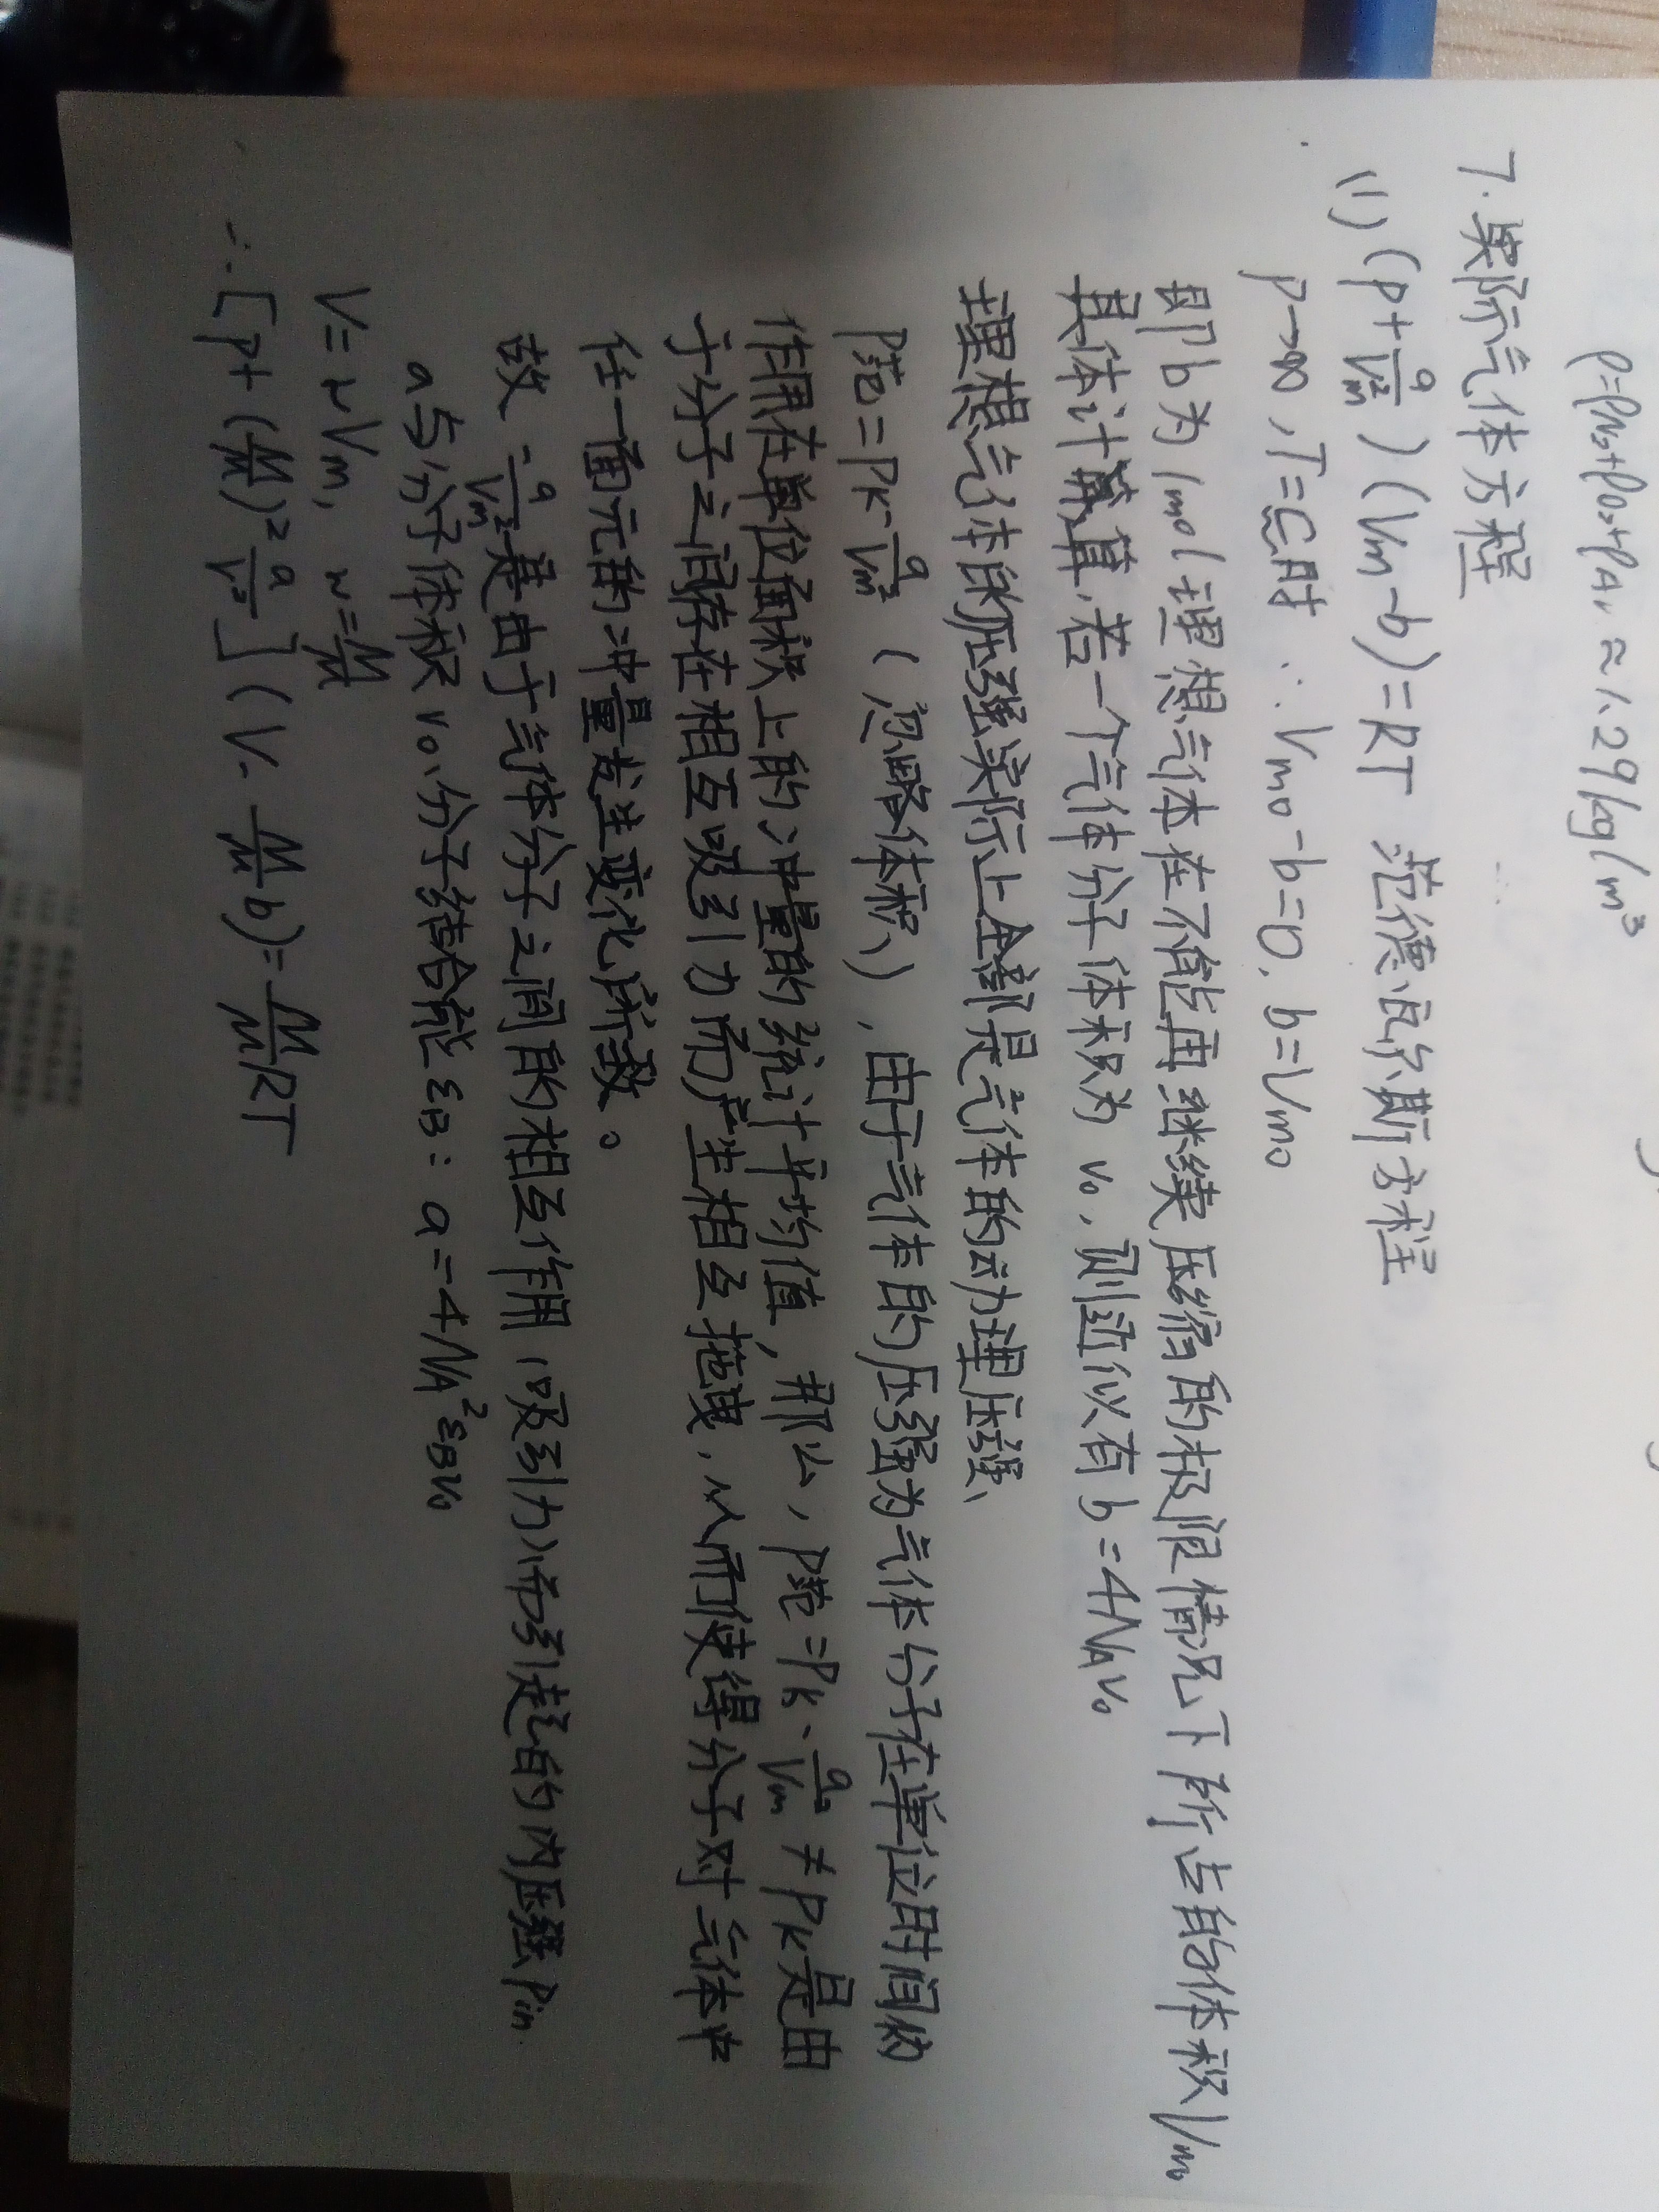 ρ=ρN₂+ρO₂+ρAr≈1.29kg/m³
7.实际气体方程
(1)(p+a/Vm²)(Vm-b)=RT 范德瓦尔斯方程
p→∞,T=C时 ∴Vm0-b=0,b=Vm0
即b为1mol理想气体在不能再继续压缩的极限情况下所占的体积Vm0
具体计算,若一个气体分子体积为v₀,则近似有b=4NAv₀
理想气体的压强实际上全部是气体的动理压强、
p范=pk-a/Vm²(忽略体积),由于气体的压强为气体分子在单位时间内
作用在单位面积上的冲量的统计平均值,那么,p范=pk-a/Vm²≠pk是由
于分子之间存在相互吸引力而产生相互拖曳,从而使得分子对气体中
任一面元的冲量发生变化所致。
故-a/Vm²是由于气体分子之间的相互作用(吸引力)而引起的内压强Pin.
a与分子体积v₀、分子结合能εB:a=-4NA²εBv₀
V=νVm, ν=M/μ
∴[p+(M/μ)²a/V²](V-M/μ b)=M/μ RT